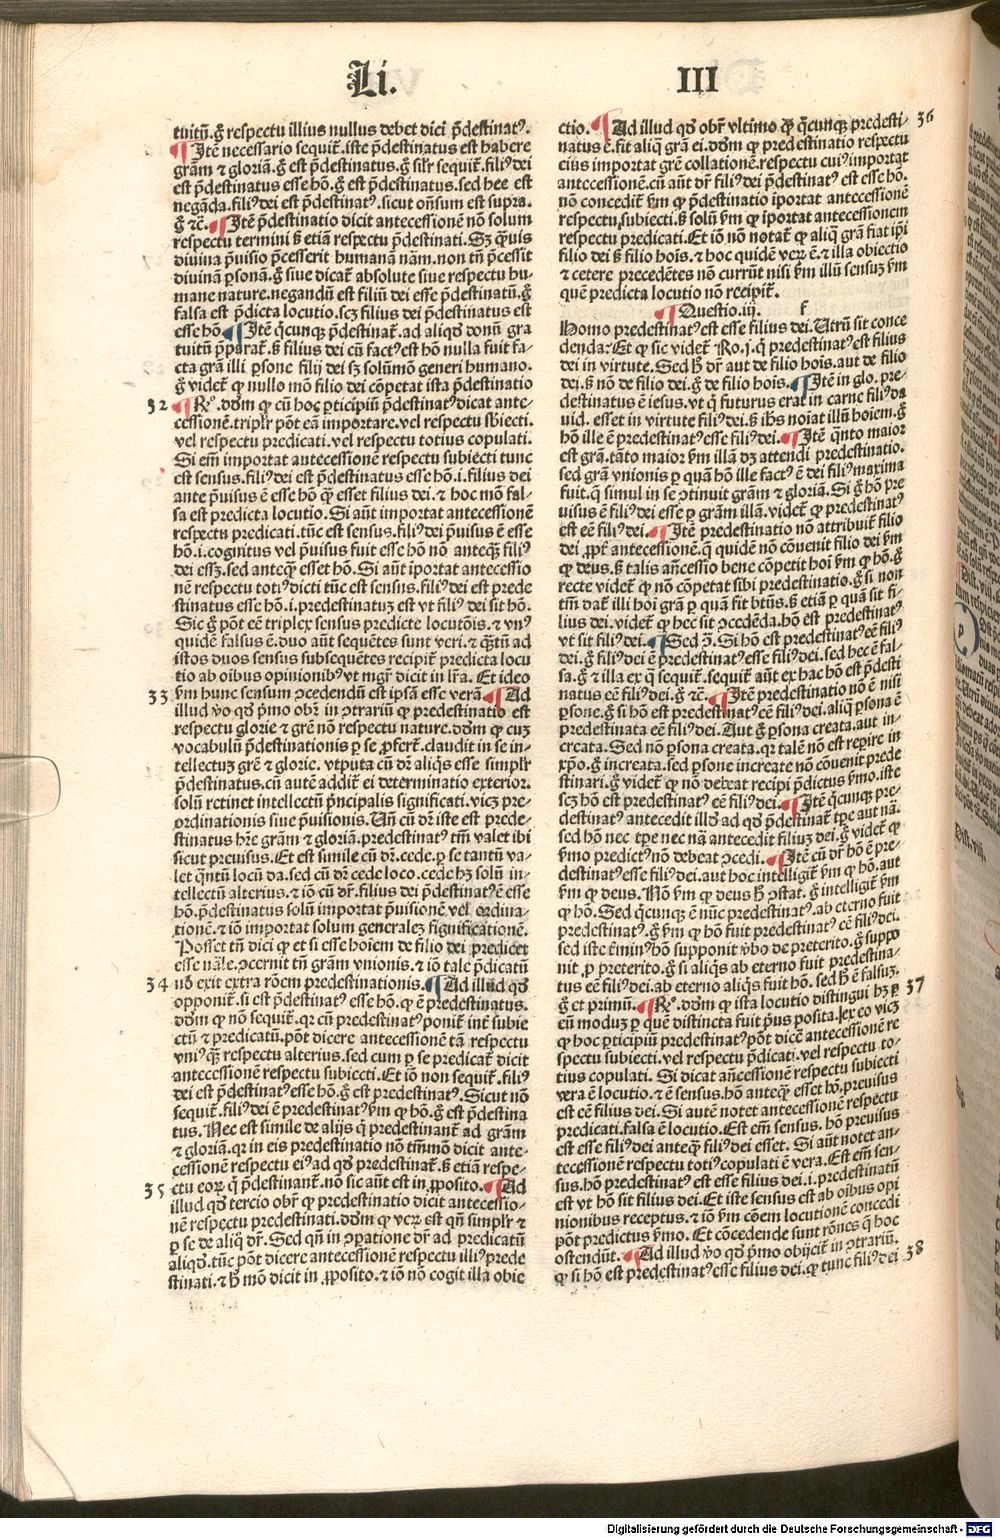 Li. III
tuitū.g̊ respectu illius nullus debet dici p̄destinatꝰ.
¶ Itē necessario sequit᷑.iste p̄destinatus est habere
grām ⁊ gloriā.g̊ est p̄destinatus.g̊ sil̄r sequit᷑.filiꝰ dei
est p̄destinatus esse hō.g̊ est p̄destinatus.sed hec est
negāda.filiꝰ dei est p̄destinatꝰ.sicut oñsum est supra.
g̊ ⁊c. ¶ Itē p̄destinatio dicit antecessionē nō solum
respectu termini ß etiā respectu p̄destinati. Sꝫ q̄uis
diuina p̄uisio p̄cesserit humanā nām.non tñ p̄cessit
diuinā ꝑsonā.g̊ siue dicat᷑ absolute siue respectu hu-
mane nature.negandū est filiū dei esse p̄destinatū.g̊
falsa est p̄dicta locutio.scꝫ filius dei p̄destinatus est
esse hō. ¶ Itē q̄cunqꝫ p̄destinat᷑.ad aliqd̓ donū gra
tuitū p̄parat᷑.ß filius dei cū factꝰ est hō nulla fuit fa-
cta grā illi ꝑsone filij dei sꝫ solūmō generi humano.
g̊ videt᷑ ꝙ nullo mō filio dei cōpetat ista p̄destinatio
32 ¶ Rꝰ. dōm ꝙ cū hoc ꝑticipiū p̄destinatꝰ dicat ante-
cessionē.tripl̓r pōt eā importare.vel respectu sbiecti.
vel respectu predicati.vel respectu totius copulati.
Si em̄ importat antecessionē respectu subiecti tunc
est sensus.filiꝰ dei est p̄destinatꝰ esse hō.i.filius dei
ante p̄uisus ē esse hō q̄ȝ esset filius dei.⁊ hoc mō fal-
sa est predicta locutio. Si aūt importat antecessionē
respectu predicati.tūc est sensus.filiꝰ dei p̄uisus ē esse
hō.i.cognitus vel p̄uisus fuit esse hō nō anteqȝ filiꝰ
dei essꝫ.sed anteqȝ esset hō. Si aūt īportat antecessio
nē respectu totiꝰ dicti tūc est sensus.filiꝰ dei est prede
stinatus esse hō.i.predestinatuȝ est vt filiꝰ dei sit hō.
Sic g̊ pōt eē triplex sensus predicte locutōis.⁊ vnꝰ
quidē falsus ē.duo aūt sequētes sunt veri.⁊ q̄tū ad
istos duos sensus subsequētes recipit᷑ predicta locu
tio ab oībus opinionibꝰ vt mgr̄ dicit in lr̄a. Et ideo
ẜm hunc sensum ꝯcedendū est ipsā esse verā
33 ¶ Ad
illud v̊o qd̓ p̄mo obr̄ in ꝯtrariū ꝙ predestinatio est
respectu glorie ⁊ grē nō respectu nature.dōm ꝙ cuȝ
vocabulū p̄destinationis ꝑ se ꝓfert᷑.claudit in se in-
tellectuȝ grē ⁊ glorie. vtputa cū dr̄ aliqs̓ esse simpl̓r
p̄destinatus.cū autē addit᷑ ei determinatio exterior.
solū retinet intellectū p̄ncipalis significati.vicꝫ pre-
ordinationis siue p̄uisionis. Uñ cū dr̄ iste est prede-
stinatus hr̄e grām ⁊ gloriā.predestinatꝰ tm̄ valet ibi
sicut preuisus. Et est simile cū dr̄.cede.ꝑ se tantū va-
let q̄ntū locū da.sed cū dr̄ cede loco.cede hȝ solū in-
tellectū alterius.⁊ iō cū dr̄.filius dei p̄destinatꝰ ē esse
hō.p̄destinatus solū importat p̄uisionē vel ordina-
tionē.⁊ iō importat solum generaleȝ significationē.
Posset tñ dici ꝙ et si esse hoīem de filio dei predicet
esse nāle.ꝯcernit tñ grām vnionis.⁊ iō tale p̄dicatū
34 nō exit extra rōem predestinationis. ¶ Ad illud qd̓
opponit᷑.si est p̄destinatꝰ esse hō.ꝙ ē predestinatus.
dōm ꝙ nō sequit᷑.qr cū predestinatꝰ ponit᷑ int᷑ subie
ctū ⁊ predicatū.pōt dicere antecessionē tā respectu
vniꝰ qȝ respectu alterius.sed cum ꝑ se predicat᷑ dicit
antecessionē respectu subiecti. Et iō non sequit᷑.filiꝰ
dei est p̄destinatꝰ esse hō.g̊ est p̄destinatꝰ. Sicut nō
sequit᷑.filiꝰ dei ē predestinatꝰ ẜm ꝙ hō.g̊ est p̄destina
tus. Nec est simile de alijs q̄ predestinant᷑ ad grām
⁊ gloriā.qr in eis predestinatio nō tm̄mō dicit ante-
cessionē respectu eiꝰ ad qd̓ predestinat᷑.ß etiā respe-
35 ctu eoꝝ q̄ p̄destinant᷑.nō sic aūt est in ꝓposito. ¶ Ad
illud qd̓ tercio obr̄ ꝙ predestinatio dicit antecessio-
nē respectu predestinati.dōm ꝙ veꝝ est qñ simpl̓r ⁊
ꝑ se de aliq̄ dr̄. Sed qñ in ꝯparatione dr̄ ad predicatū
aliqd̓.tūc pōt dicere antecessionē respectu illiꝰ prede
stinati.⁊ h̄ mō dicit in ꝓposito.⁊ iō nō cogit illa obie
ctio. ¶ Ad illud qd̓ obr̄ vltimo ꝙ q̄cunqȝ predesti- 36
natus ē.fit aliq̄ grā ei.dōm ꝙ predestinatio respectu
eius importat grē collationē.respectu cuiꝰ importat
antecessionē.cū aūt dr̄ filiꝰ dei p̄destinatꝰ est esse hō.
nō concedit᷑ ẜm ꝙ p̄destinatio īportat antecessionē
respectu subiecti.ß solū ẜm ꝙ īportat antecessionem
respectu predicati. Et iō nō notat᷑ ꝙ aliq̄ grā fiat ip̄i
filio dei ß filio hoīs.⁊ hoc quidē veꝝ ē.⁊ illa obiectio
⁊ cetere precedētes nō currūt nisi ẜm illū sensuȝ ẜm
quē predicta locutio nō recipit᷑.
¶ Questio.iij. f
Homo predestinatꝰ est esse filius dei. Utrū sit conce
denda: Et ꝙ sic videt᷑ Ro.j.q̄ predestinatꝰ est filius
dei in virtute. Sed h̄ dr̄ aut de filio hoīs.aut de filio
dei.ß nō de filio dei.g̊ de filio hoīs. ¶ Itē in glo. pre-
destinatus ē iesus.vt q̄ futurus erat in carne filiꝰ da
uid. esset in virtute filiꝰ dei.ß ihs noīat illū hoīem.g̊
hō ille ē predestinatꝰ esse filiꝰ dei. ¶ Itē q̄nto maior
est grā.tāto maior ẜm illā dȝ attendi predestinatio.
sed grā vnionis ꝑ quā hō ille factꝰ ē dei filiꝰ maxima
fuit.q̄ simul in se ꝯtinuit grām ⁊ gloriā. Si g̊ hō pre
uisus ē filiꝰ dei esse ꝑ grām illā.videt᷑ ꝙ predestinatꝰ
est eē filiꝰ dei. ¶ Itē predestinatio nō attribuit᷑ filio
dei ꝓpt᷑ antecessionē.q̄ quidē nō cōuenit filio dei ẜm
ꝙ deus.ß talis añcessio bene cōpetit hoī ẜm ꝙ hō.g̊
recte videt᷑ ꝙ nō cōpetat sibi predestinatio.g̊ si non
tm̄ dat᷑ illi hoī grā ꝑ quā fit bt̄us.ß etiā ꝑ quā sit fi-
lius dei.videt᷑ ꝙ hec sit ꝯcedēda.hō est predestinatꝰ
vt sit filiꝰ dei. ¶ Sed ꝯ̄. Si hō est predestinatꝰ eē filiꝰ
dei.g̊ filiꝰ dei ē predestinatꝰ esse filiꝰ dei.sed hec ē fal-
sa.g̊ ⁊ illa ex q̄ sequit᷑.sequit᷑ aūt ex hac hō est p̄desti
natus eē filiꝰ dei.g̊ ⁊c. ¶ Itē predestinatio nō ē nisi
ꝑsone.g̊ si hō est predestinatꝰ eē filiꝰ dei.aliq̄ ꝑsona ē
predestinata eē filiꝰ dei. Aut g̊ ꝑsona creata.aut in-
creata. Sed nō ꝑsona creata.qr talē nō est reperire in
xp̄o.g̊ increata.sed ꝑsone increate nō cōuenit prede
stinari.g̊ videt᷑ ꝙ nō debeat recipi p̄dictus ẜmo.iste
scȝ hō est predestinatꝰ eē filiꝰ dei. ¶ Itē q̄cunqȝ pre-
destinatꝰ antecedit illd̓ ad qd̓ p̄destinat᷑ tp̄e aut nā.
sed hō nec tp̄e nec nā antecedit filiuȝ dei.g̊ videt᷑ ꝙ
ẜmo predictꝰ nō debeat ꝯcedi. ¶ Itē cū dr̄ hō ē pre-
destinatꝰ esse filiꝰ dei.aut hoc intelligit᷑ ẜm ꝙ hō.aut
ẜm ꝙ deus. Nō ẜm ꝙ deus h̄ ꝯstat.g̊ intelligit᷑ ẜm
ꝙ hō. Sed q̄cunqȝ ē nūc predestinatꝰ.ab eterno fuit
predestinatꝰ.g̊ ẜm ꝙ hō fuit predestinatꝰ eē filiꝰ dei.
sed iste t̄minꝰ hō supponit v̓bo de preterito.g̊ suppo
nit ꝓ preterito.g̊ si aliqs̓ ab eterno fuit predestina-
tus eē filiꝰ dei.ab eterno aliqs̓ fuit hō. sed h̄ ē falsuȝ.
g̊ et primū. ¶ Rꝰ. dōm ꝙ ista locutio distingui hȝ ꝑ 37
eū moduȝ ꝑ quē distincta fuit p̄us posita.ex eo vicȝ
ꝙ hoc ꝑticipiū predestinatꝰ pōt dicē antecessionē re
spectu subiecti.vel respectu p̄dicati.vel respectu to-
tius copulati. Si dicat añcessionē respectu subiecti
vera ē locutio.⁊ ē sensus.hō anteqȝ esset hō.preuisus
est eē filius dei. Si autē notet antecessionē respectu
predicati.falsa ē locutio. Est em̄ sensus. hō preuisus
est esse filiꝰ dei anteqȝ filiꝰ dei esset. Si aūt notet an-
tecessionē respectu totiꝰ copulati ē vera. Est em̄ sen-
sus.hō predestinatꝰ est esse filius dei.i.predestinatū
est vt hō sit filius dei. Et iste sensus est ab oībus opi
nionibus receptus.⁊ iō ẜm cōem locutionē concedi
pōt predictus ẜmo. Et cōcedende sunt rōnes q̄ hoc
ostendūt. ¶ Ad illud v̊o qd̓ p̄mo obijcit᷑ in ꝯtrariū. 38
ꝙ si hō est predestinatꝰ esse filius dei.ꝙ tunc filiꝰ dei
Digitalisierung gefördert durch die Deutsche Forschungsgemeinschaft - DFG